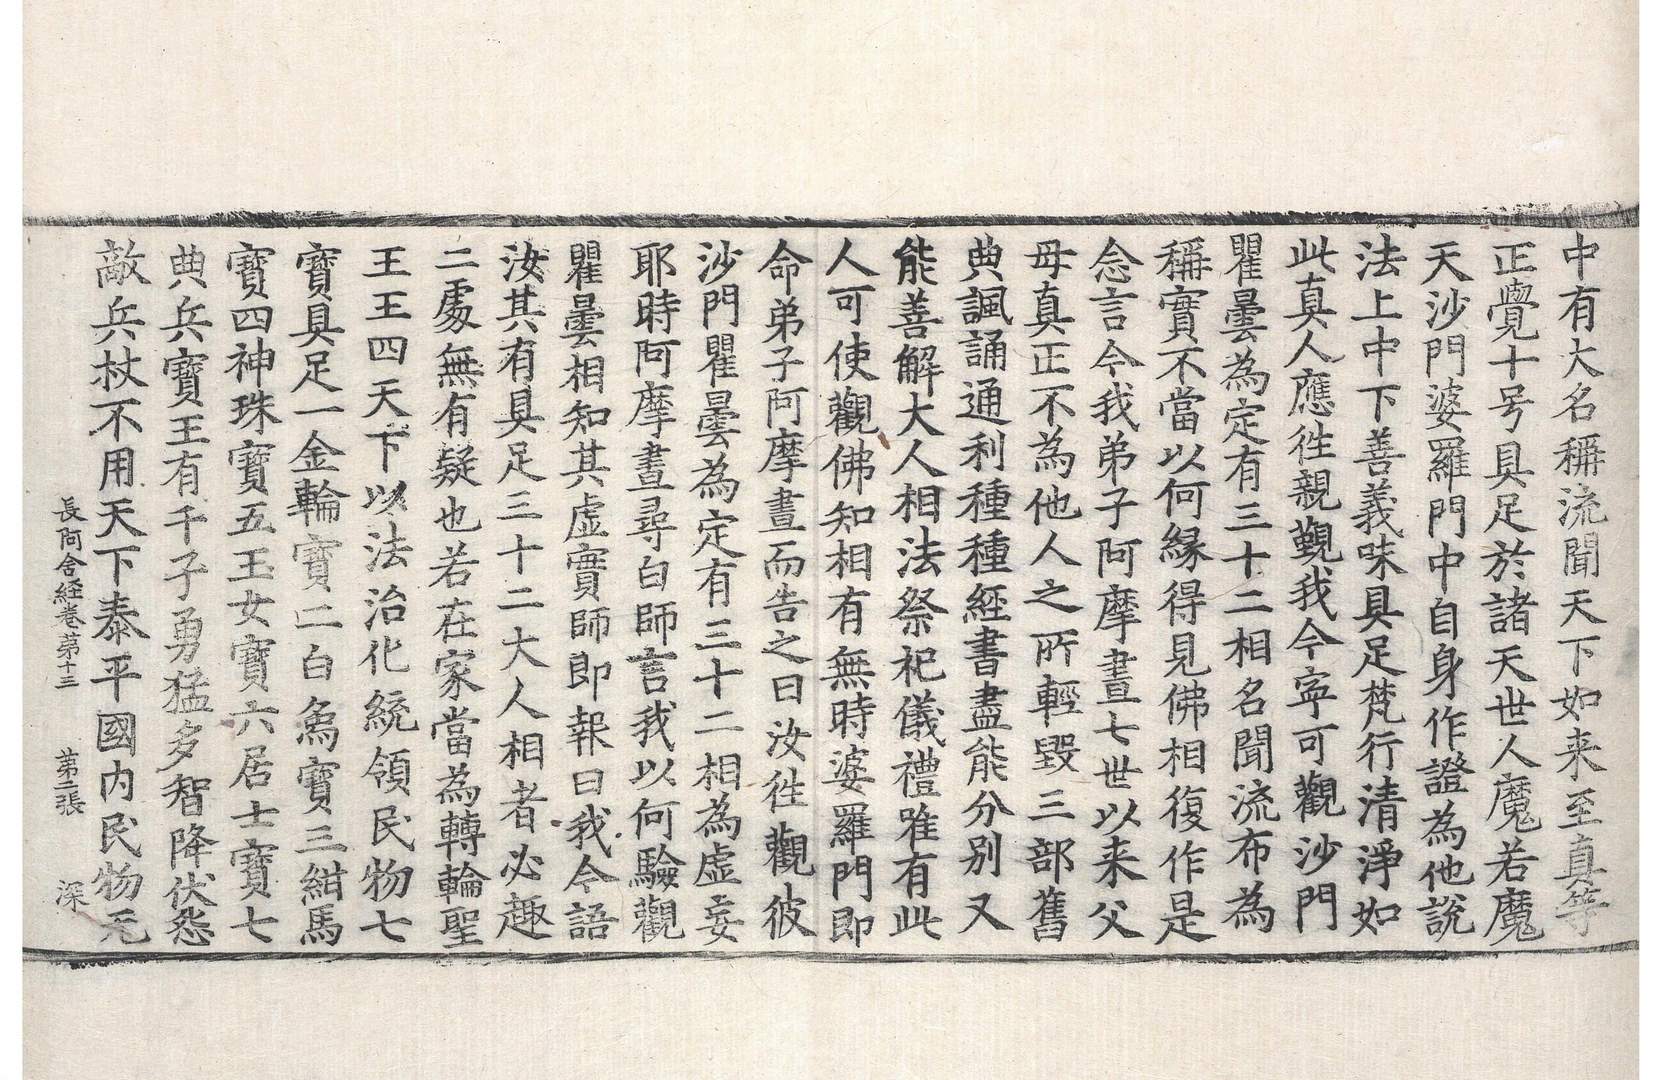 中有大名稱流聞天下如来至真等
正覺十号具足於諸天世人魔若魔
天沙門婆羅門中自身作證為他說
法上中下善義味具足梵行清淨如
此真人應徃親覲我今寜可觀沙門
瞿曇為定有三十二相名聞流布為
稱實不當以何緣得見佛相復作是
念言今我弟子阿摩晝七世以来父
母真正不為他人之所輕毀三部舊
典諷誦通利種種經書盡能分別又
能善解大人相法祭祀儀禮唯有此
人可使觀佛知相有無時婆羅門即
命弟子阿摩晝而告之曰汝徃觀彼
沙門瞿曇為定有三十二相為虛妄
耶時阿摩晝尋白師言我以何驗觀
瞿曇相知其虛實師即報曰我今語
汝其有具足三十二大人相者必趣
二處無有疑也若在家當為轉輪聖
王王四天下以法治化統領民物七
寶具足一金輪寶二白象寶三紺馬
寶四神珠寶五玉女寶六居士寶七
典兵寶王有千子勇猛多智降伏怨
敵兵杖不用天下泰平國内民物无
長阿含経卷第十三 第二張 深